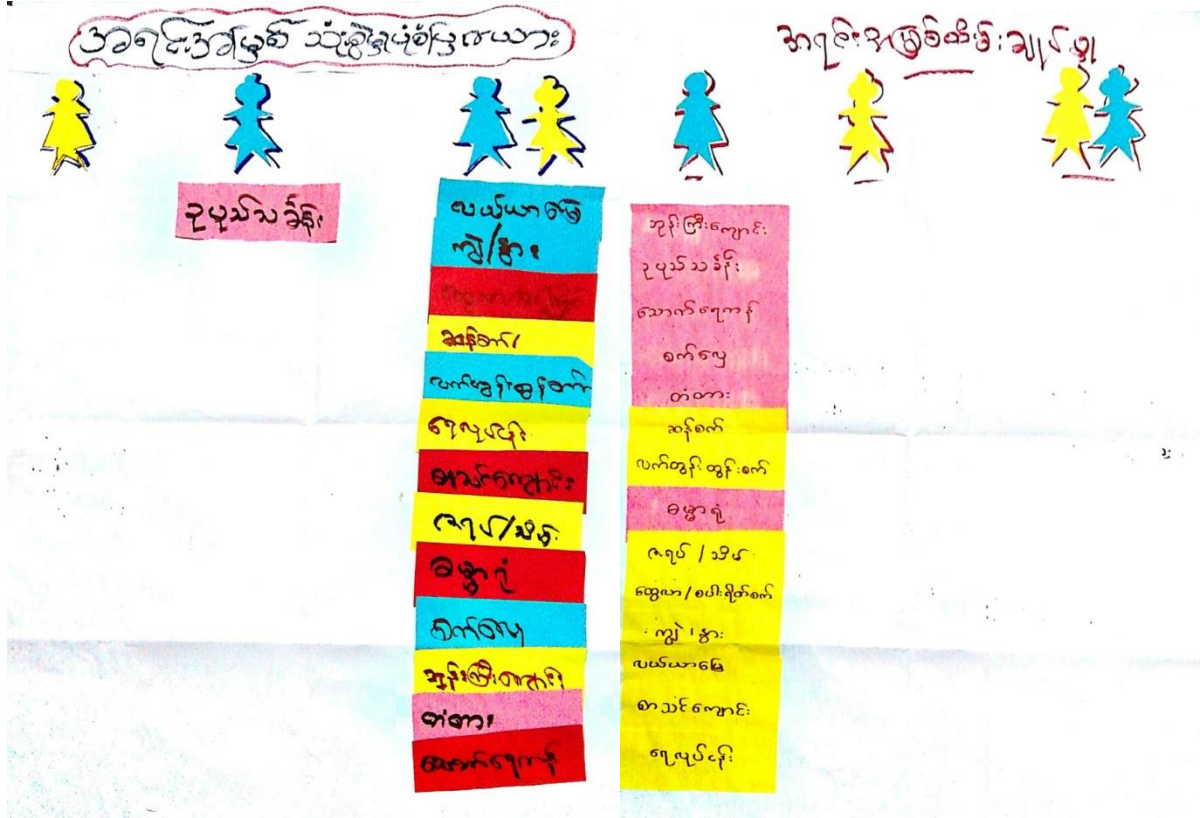 အရင်းအမြစ် သုံးစွဲမှုပုံစံပြဇယား
အရင်းအမြစ်ထိမ်းချုပ်မှု
ဥပုသ်သခ္နန်း
လယ်ယာမြေ
ကျွဲ/နွား
ဆန်စက်
လက်တွန်းထွန်စက်
ရေလုပ်ငန်း
စာသင်ကျောင်း
ဇရပ်/သိမ်
ဓမ္မာရုံ
စက်လှေ
ဘုန်းကြီးကျောင်း
တံတား
သောက်ရေကန်
ဘုန်းကြီးကျောင်း
ဥပုသ်သခ်န်း
သောက်ရေကန်
စက်လှေ
တံတား
ဆန်စက်
လက်တွန်းထွန်းစက်
ဓမ္မာရုံ
ဇရပ် / သိမ်
ထွေလာ / စပါးရိတ်စက်
ကျွဲ ၊ နွား
လယ်ယာမြေ
စာသင်ကျောင်း
ရေလုပ်ငန်း